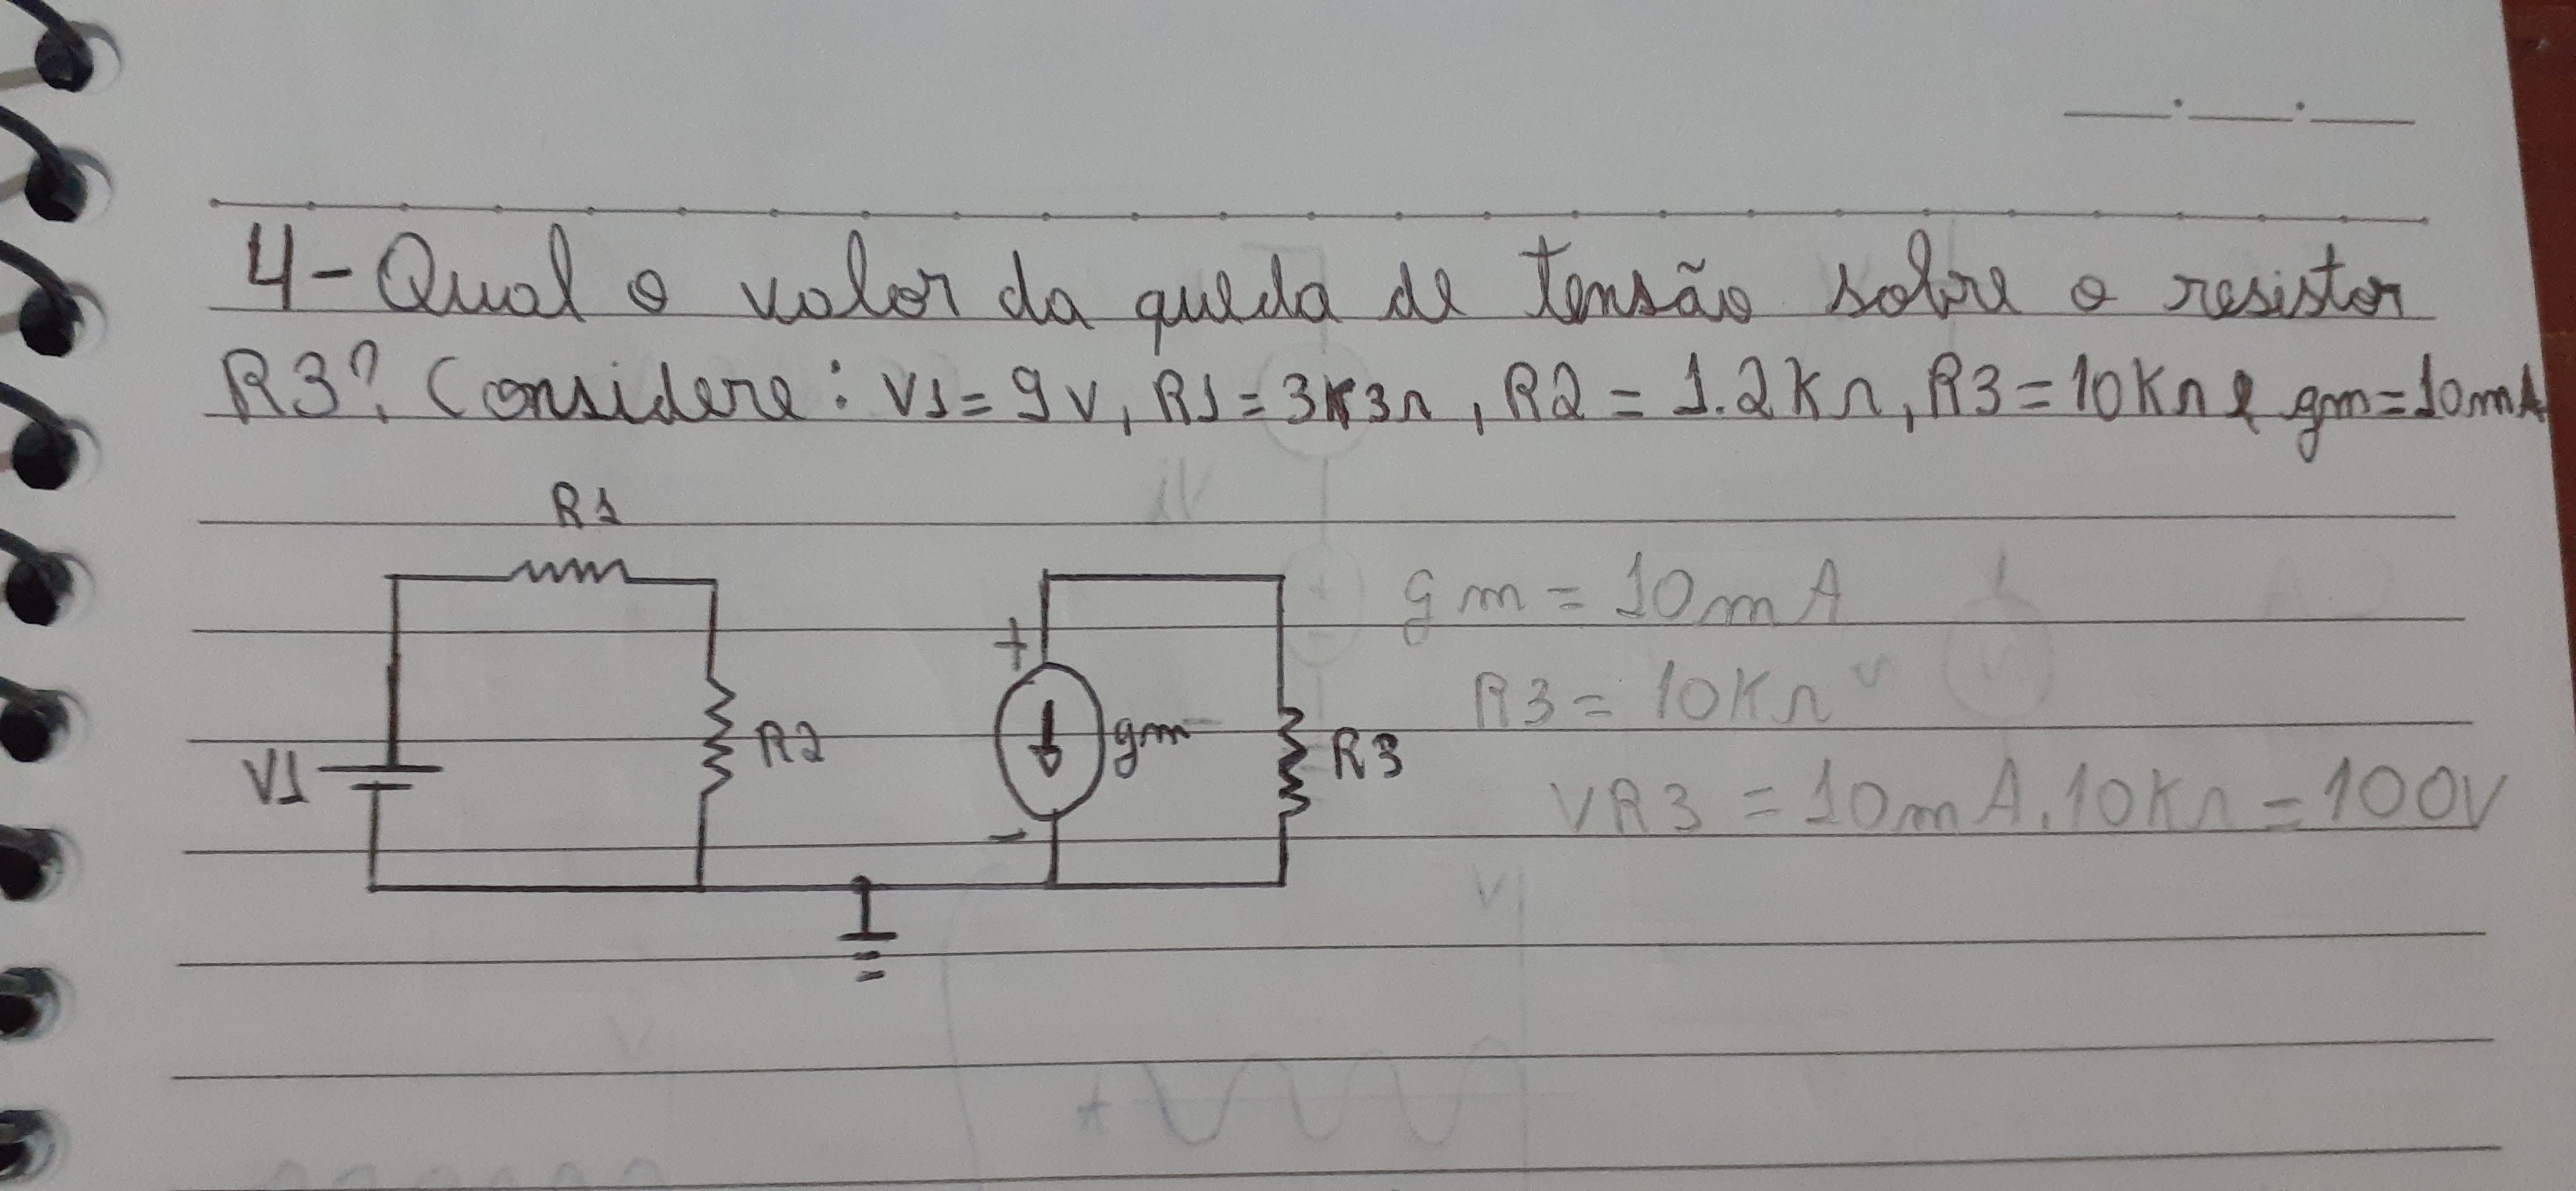 4-Qual o valor da queda de tensão sobre o resistor
R3? Considere: V1=9V, R1=3K3Ω, R2=1.2KΩ, R3=10KΩ e gm=10mA
R1
gm = 10mA
R3 = 10KΩ
V1
R2
+
gm
-
R3
VR3 = 10mA.10KΩ=100V